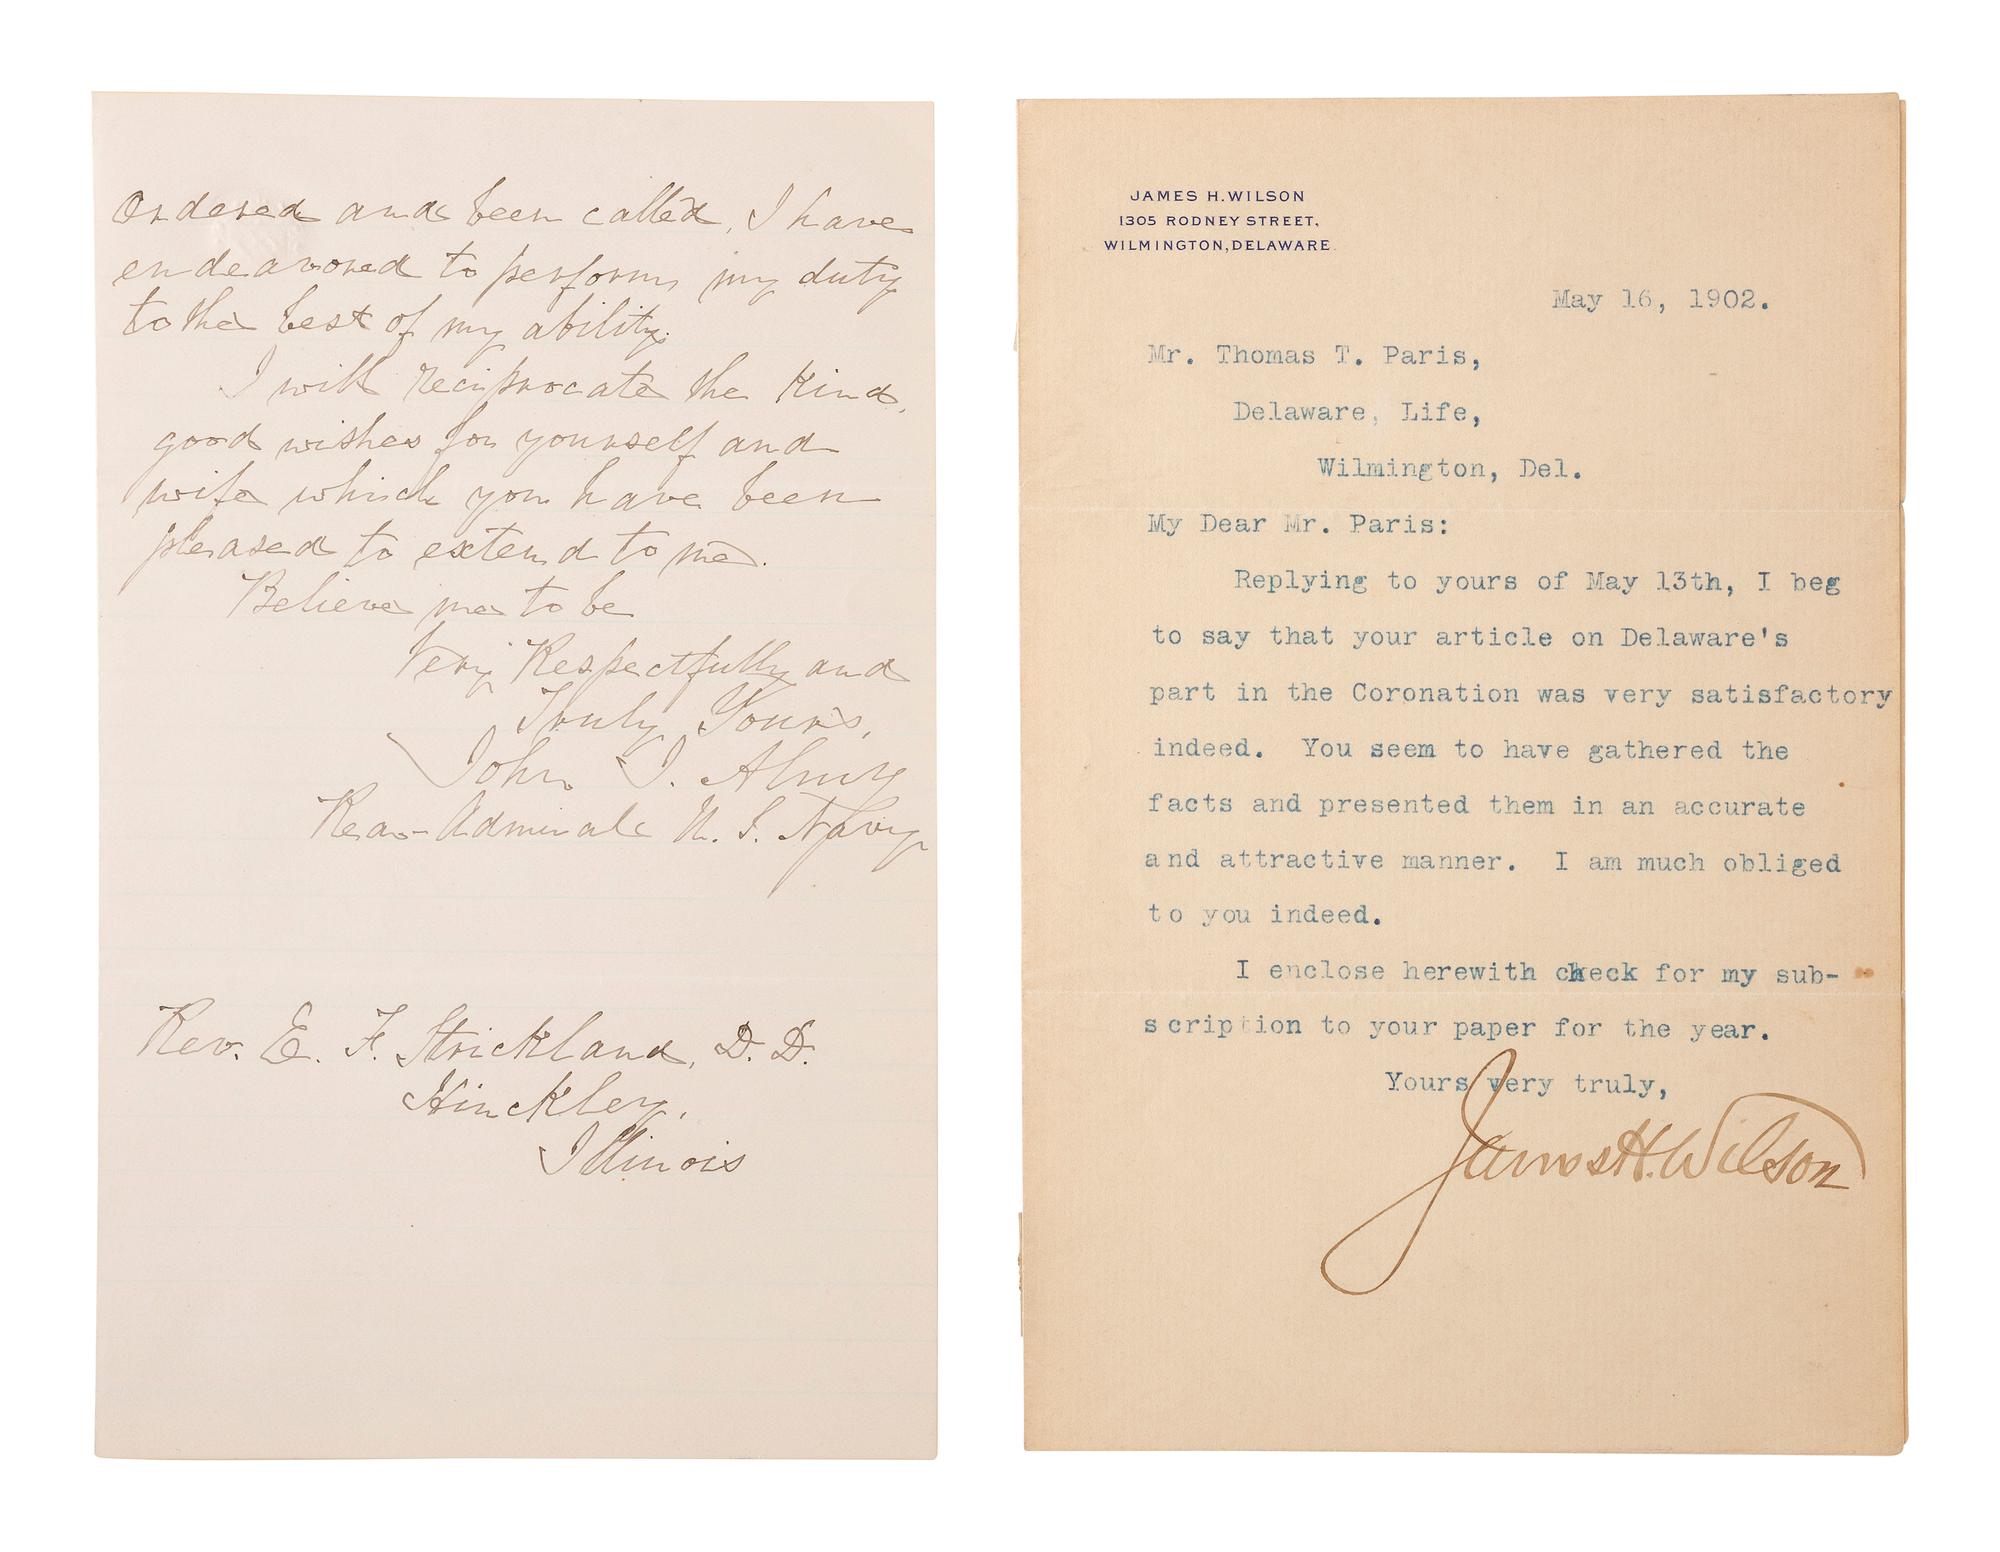 Ordered and been called, I have
endeavored to perform my duty
to the best of my ability.
I will reciprocate the kind,
good wishes for yourself and
wife which you have been
pleased to extend to me.
Believe me to be
Very Respectfully and
Truly Yours,
John J. Almy
Rear-Admiral U. S. Navy
Rev. E. F. Strickland, D. D.
Hinckley,
Illinois
JAMES H. WILSON
1305 RODNEY STREET,
WILMINGTON, DELAWARE.
May 16, 1902.
Mr. Thomas T. Paris,
Delaware, Life,
Wilmington, Del.
My Dear Mr. Paris:
Replying to yours of May 13th, I beg
to say that your article on Delaware's
part in the Coronation was very satisfactory
indeed. You seem to have gathered the
facts and presented them in an accurate
and attractive manner. I am much obliged
to you indeed.
I enclose herewith check for my sub-
scription to your paper for the year.
Yours very truly,
James H. Wilson